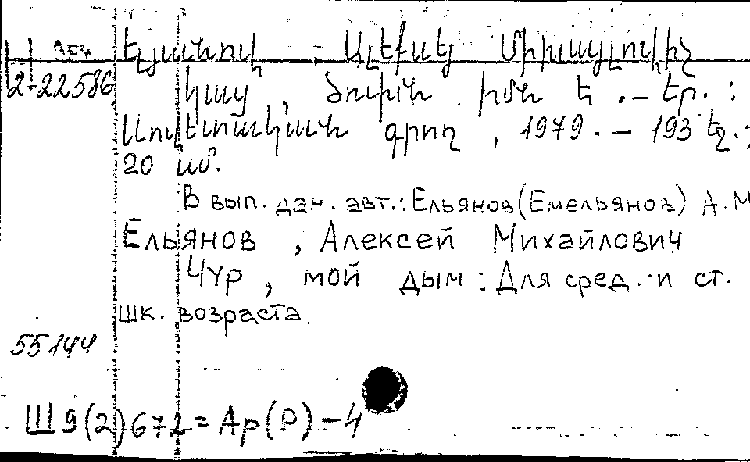 Ելյանով, Ալեքսեյ Միխայլովիչ
2-22586
կաց, ծուխն իմն է .— Եր.:
Սովետական գրող, 1979.— 193 էջ.;
20 սմ.
В вып. дан. авт.: Ельянов (Емельянов) А.М
Ельянов, Алексей Михайлович
Чур, мой дым: Для сред. и ст.
шк. возраста.
55144
Ш9(2)671=Ар(Р)-4